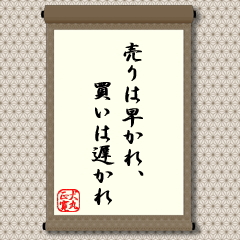 売りは早かれ、
買いは遅かれ